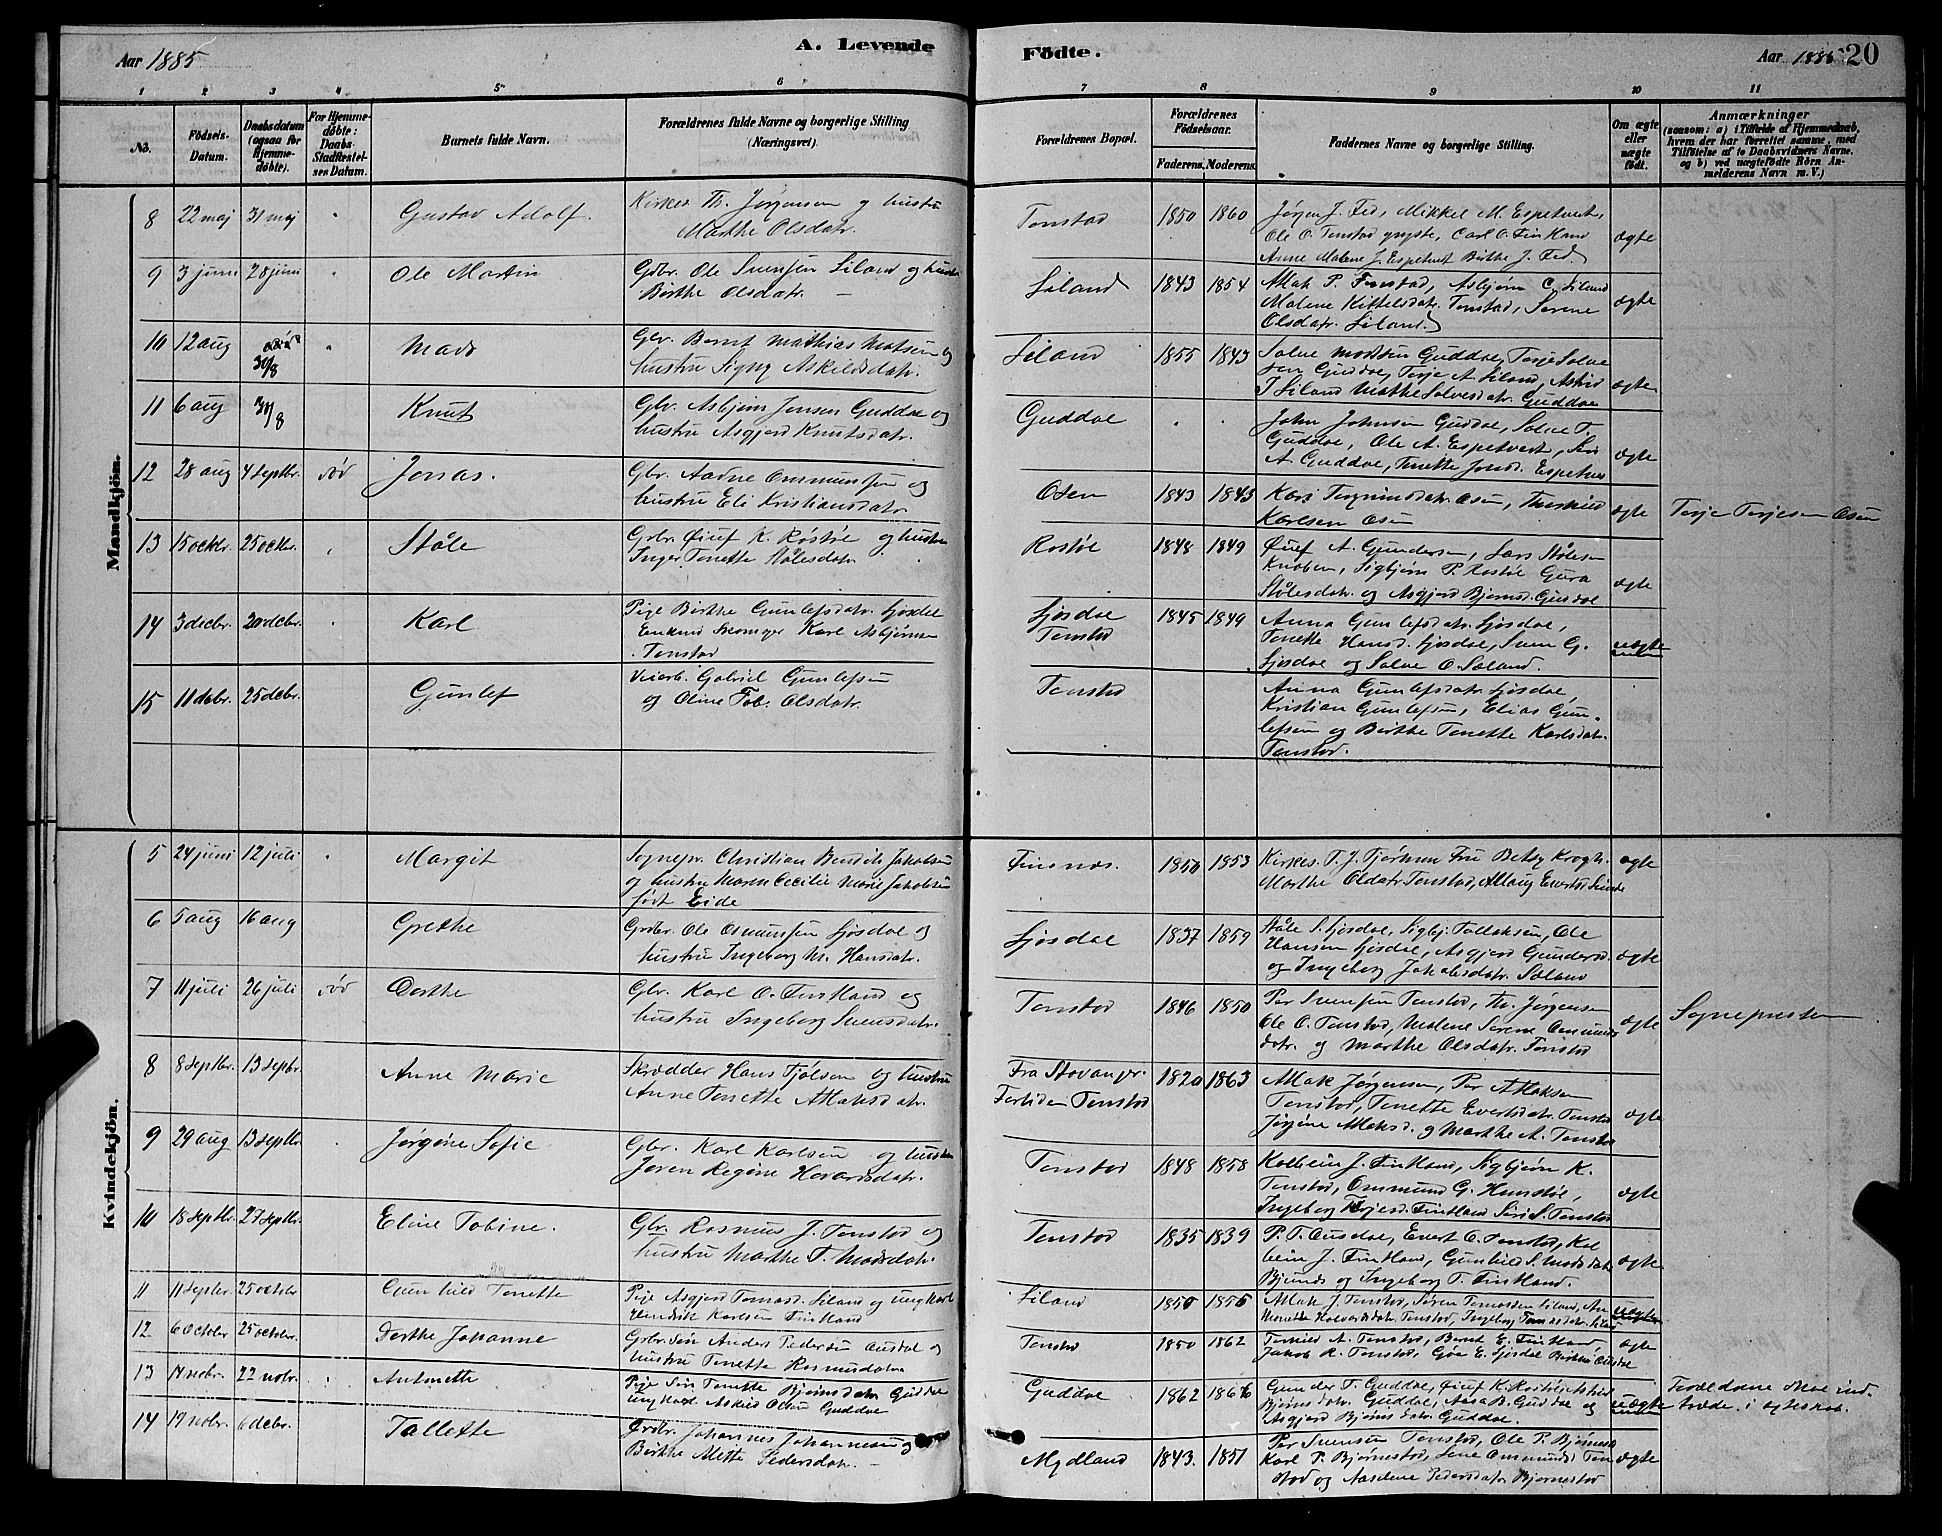 Aar 1885
A. Levende
Födte.
Aar 1885
20
1 2 3 4 5 6 7 8 9 10 11
No.
Födsels-Datum.
Daabsdatum (ogsaa for Hjemme-döbte).
For Hjemme-döbte: Daabs-Stadfæstel-ses Datum.
Barnets fulde Navn.
Forældrenes fulde Navne og borgerlige Stilling (Næringsvei).
Forældrenes Bopæl.
Forældrenes Födselsaar.
Faderens. Moderens.
Faddernes Navne og borgerlige Stilling.
Om ægte eller uægte født.
Anmærkninger
(saasom: a) i Tilfælde af Hjemmedaab, hvem der har forrettet samme, med Tilföielse af to Daabsvidners Navne, og b) ved uægtefödte Börn An-melderens Navn m. V.)
Mandkjön.
8 22 maj 31 maj " Gustav Adolf. Kirkes. Th. Jørgensen og hustru
Marthe Olsdatr.
Tonstad 1850 1860 Jørgen J. Fed, Mikkel M. Espetvedt,
Ole O. Tonstad yngste, Carl O. Fintland
Anne Malene J. Espetvet Birthe J. Fed. ægte
9 3 juni 28 juni " Ole Martin Gdbr. Ole Svensen Liland og hustru
Birthe Olsdatr.
Liland 1843 1854 Atlak P. Tonstad, Asbjørn C. Liland
Malene Kittelsdatr. Tonstad, Serene
Olsdatr. Liland. ægte
10 12 aug 30/8 " Mads Gbr. Bernt Mathias Matsen og
hustru Signy Askildsdatr.
Liland 1855 1843 Salve Madsen Guddal, Terje Salve
sen Guddal, Terje A. Liland, Astrid
T. Liland Marthe Salvesdatr. Guddal ægte
11 6 aug 30/8 Knut Gbr. Asbjørn Jensen Guddal og
hustru Asgjerd Knutsdatr.
Guddal . . John Johnsen Guddal, Salve T.
Guddal, Ole A. Espetvedt, Siri
A. Guddal, Tenette Jonsd. Espetvet ægte
12 28 aug 4 septbr. død Jonas. Gbr. Aadne Ommunsen og
hustru Eli Kristiansdatr.
Osen 1843 1843 Kari Torgrimsdatr. Osen, Thorkild
Karlsen Osen ægte Terje Terjesen Osen
13 15 octbr. 25 octbr. " Ståle Gbr. Øiuf K. Rostøl og hustru
Inger Tonette Stålesdatr.
Rostøl 1848 1849 Øiuf A. Gundersen, Lars Stålesen
Knaben, Sigbjørn P. Rostøl Gura
Stålesdatr. og Asgjerd Bjørnsd. Guddal ægte
14 3 decbr. 20 decbr. " Karl Pige Birthe Gunlefsdatr. Ljosdal
Enkem. Skomager Karl Asbjørnsen
Tonstad
Ljosdal
Tonstad 1845 1849 Anna Gunlefsdatr. Ljosdal,
Tonette Hansd. Ljosdal, Sven G.
Ljosdal og Salve O. Soland. uægte
15 11 debr. 25 debr. Gunlef Veiarb. Gabriel Gunlefsen
og Oline Tob. Olsdatr.
Tonstad Anna Gunlefsdatr. Ljosdal,
Kristian Gunlefsen, Elias Gun-
lefsen og Birthe Tonette Karlsdatr.
Tonstad.
Kvindekjön.
5 24 juni 12 juli " Margit Sognepr. Christian Bendik Jakobsen
og hustru Maren Cecilie Marie Jakobsen
født Eide
Finsnes. 1850 1853 Kirkes. T. J. Tjørhum Fru Betsy Krogh.
Marthe Olsdatr. Tonstad, Aslaug Evertsd. ægte
6 5 aug 16 aug Grethe Grdbr. Ole Omunsen Ljosdal og
hustru Ingeborg M. Hansdatr.
Ljosdal 1837 1859 Ståle S. Ljosdal, Sigbj. Tollaksen, Ole
Hansen Ljosdal, Asgjerd Gundersd.
og Ingeborg Jakobsdatr. Soland ægte
7 11 juli 26 juli død Dorthe Gbr. Karl O. Fintland og
hustru Ingeborg Svensdatr.
Tonstad 1846 1850 Per Svensen Tonstad, Th. Jørgensen
Ole O. Tonstad, Malene Serene Ommunds
datr. og Marthe Olsdatr. Tonstad ægte Sognepresten
8 8 septbr. 13 septbr. Anne Marie Skrædder Hans Tjølsen og hustru
Anne Tonette Atlaksdatr.
Fra Stavanger.
Fortiden Tonstad 1820 1863 Atlak Jørgensen, Per Atlaksen
Tonstad, Tonette Evertsdatr. Tonstad
Jørgine Atlaksd. og Marthe A. Tonstad ægte
9 29 aug 13 septbr. Jørgine Sofie Gbr. Karl Karlsen og hustru
Joren Regine Havorsdatr.
Tonstad 1848 1858 Kolbein J. Fintland, Sigbjørn K.
Tonstad, Ommund G. Hunstøl,
Ingeborg Terjesd. Fintland Siri S. Tonstad ægte
10 18 septbr. 27 septbr. Eline Tobine. Gbr. Rasmus J. Tonstad og
hustru Marthe T. Madsdatr.
Tonstad 1835 1839 P. T. Ousdal, Evert O. Tonstad, Kol
bein J. Fintland, Gunhild S. Madsdatr.
Bjunds og Ingeborg T. Fintland. ægte
11 11 septbr. 25 octobr Gunhild Tonette Pige Asgjerd Tomasd. Liland og ungkarl
Hendrik Karlsen Fintland
Liland 1850 1855 Atlak J. Tonstad, Søren Tomassen Liland, An
Tonette Halvorsdatr. Tonstad, Ingeborg Tomasdatr. Liland uægte
12 6 octobr 25 octobr. Dorthe Johanne Grbr. Søn Anders Pedersen Ousdal og
hustru Tonette Rasmusdatr.
Tonstad 1850 1862 Torkild A. Tonstad, Bernt E. Fintland,
Jakob R. Tonstad, Gøa E. Ljosdal Birthe Ousdal ægte
13 14 nobr. 22 nobr. " Antonette Pige Siri Tonette Bjørnsdatr. Guddal
Ungkarl Askild Olsen Guddal
Guddal 1862 1866 Gunder T. Guddal, Øiuf K. Rostøl, Astrid
Bjørnsdatr. Guddal, Aasa B. Guddal og
Asgjerd Bjørnsdatr. Guddal. uægte Forældrene skal ind-
træde i ægteskab.
14 19 nobr. 6 debr. Tallette Grdbr. Johannes Johannesen og
Birthe Mette Pedersdatr.
Mydland 1843. 1851 Per Svensen Tonstad, Ole P. Bjørnestad
Karl P. Bjørnestad, Lene Ommunds. Ton
stad og Aaselene Pedersdatr. Bjørnestad ægte